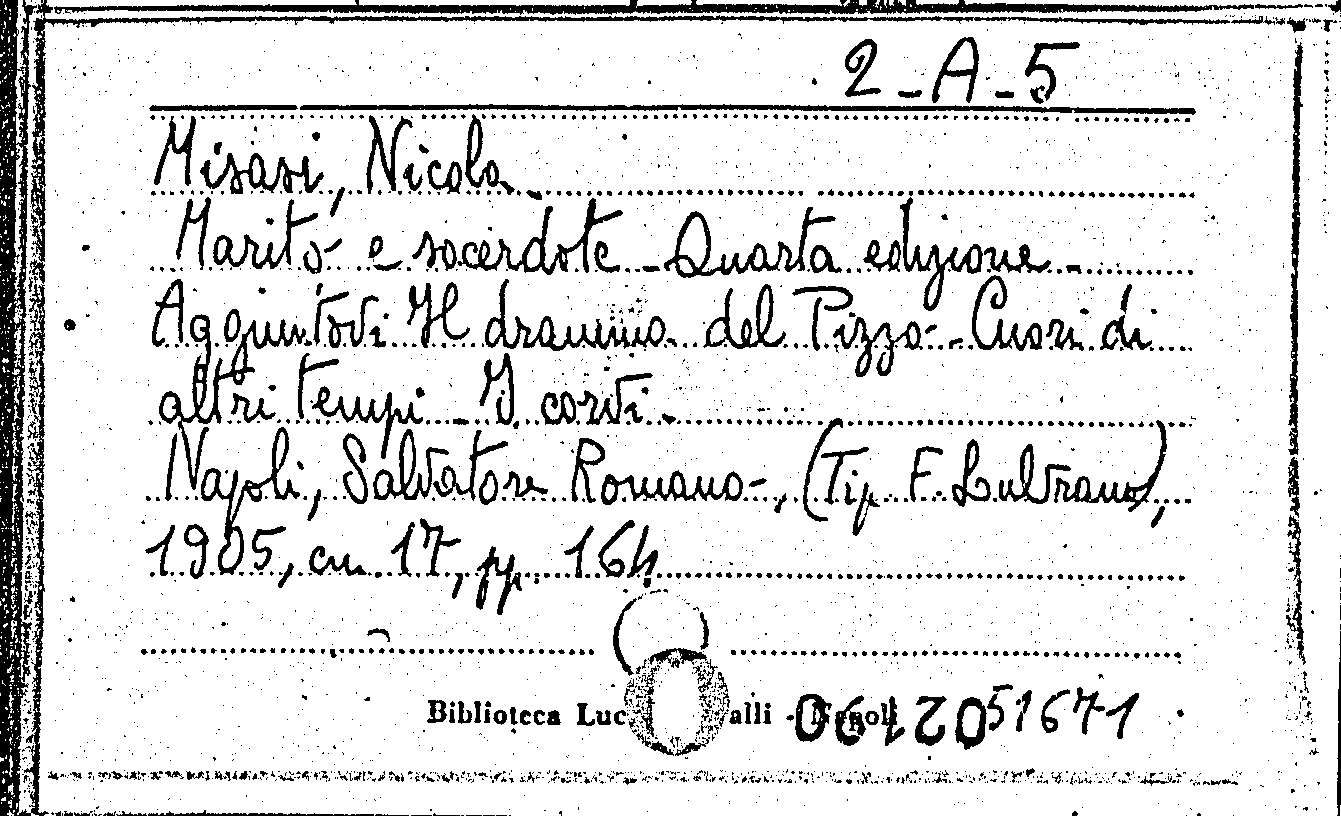 2-A-5
Misasi, Nicola.
Marito e sacerdote - Quarta edizione -
Aggiuntovi Il dramma del Pizzo - Cuori di
altri tempi - I corvi -
Napoli, Salvatore Romano -, (Tip. F. Lubrano),
1905, cm 17, pp. 164
Biblioteca Luc alli - Napoli
51671